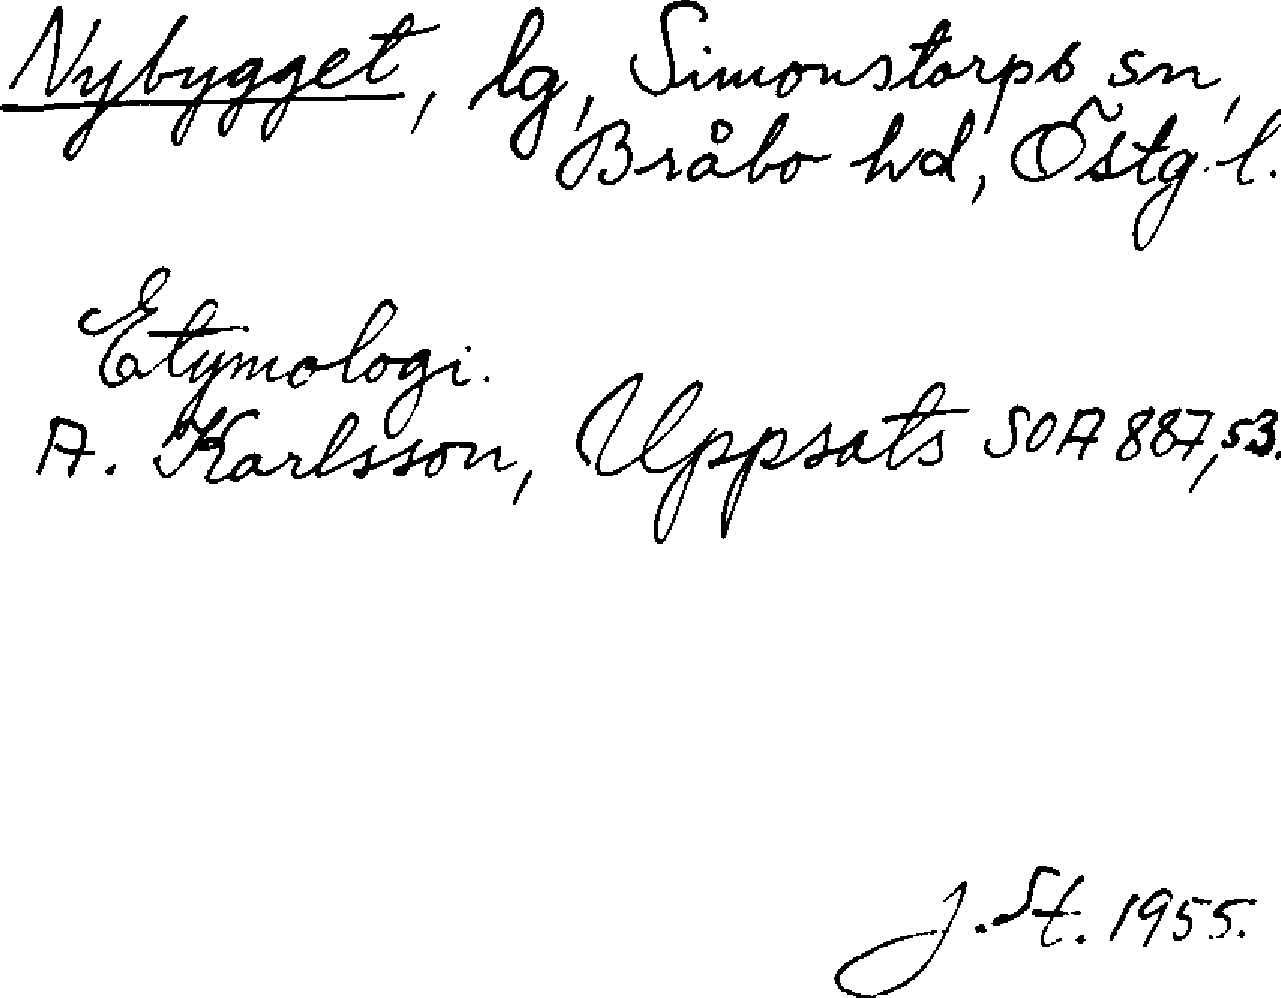 Nybygget, lg, Simonstorps sn,
Bråbo hd, Östg. l.
Etymologi.
A. Karlsson, Uppsats SOA 887, 53.
J. St. 1955.